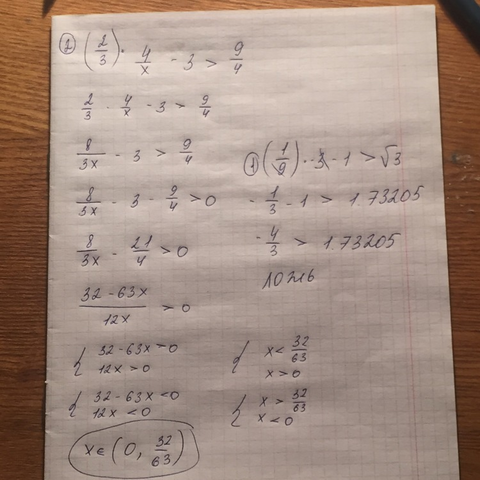 ② (2/3) · 4/x - 3 > 9/4
2/3 · 4/x - 3 > 9/4
8/3x - 3 > 9/4
8/3x - 3 - 9/4 > 0
8/3x - 21/4 > 0
32-63x/12x > 0
{ 32-63x>0
12x>0
{ 32-63x<0
12x<0
x∈(0, 32/63)
① (1/9) · -3 - 1 > √3
-1/3 - 1 > 1.73205
-4/3 > 1.73205
ложь
{ x< 32/63
x>0
{ x> 32/63
x<0